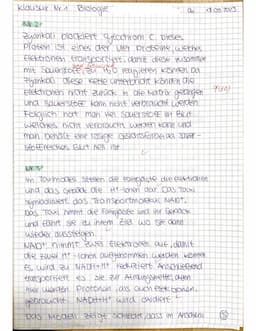 Klausur Nr.1 Biologie
Nr.2:
Zyankali blockiert Cytochrom C. Dieses
Protein ist eines der vier Proteine, welches
Elektronen transportiert, damit diese zusammen
mit Sauerstoff zu H₂O reagieren können. Da
Zyankali diese Kette unterbricht können die
Elektronen nicht zurück in die Matrix gelangen
und Sauerstoff kann nicht verbraucht werden.
Folglich hat man viel Sauerstoff im Blut
welches nicht verbraucht werden kann und
man behält eine rosige Gesichtsfarbe da sauer-
stoffreiches Blut rot ist.
Nr.3:
Im Taximodell stellen die Fahrgäste die Elektronen
und das Gepäck die H⁺-Ionen dar. Das Taxi
symbolisiert das Transportmolekül NAD⁺.
Das Taxi nimmt die Fahrgäste und ihr Gepäck
und fährt sie zu ihrem Ziel wo sie dann
wieder aussteigen.
NAD⁺ nimmt zwei Elektronen auf, damit
die zwei H⁺-Ionen aufgenommen werden können.
Es wird zu NADH+H⁺ reduziert. Anschließend
transportiert es sie zur Atmungskette, denn
hier werden Protonen als auch Elektronen
gebraucht. NADH+H⁺ wird oxidiert.
Das Modell zeigt schlecht, dass im Ansehen